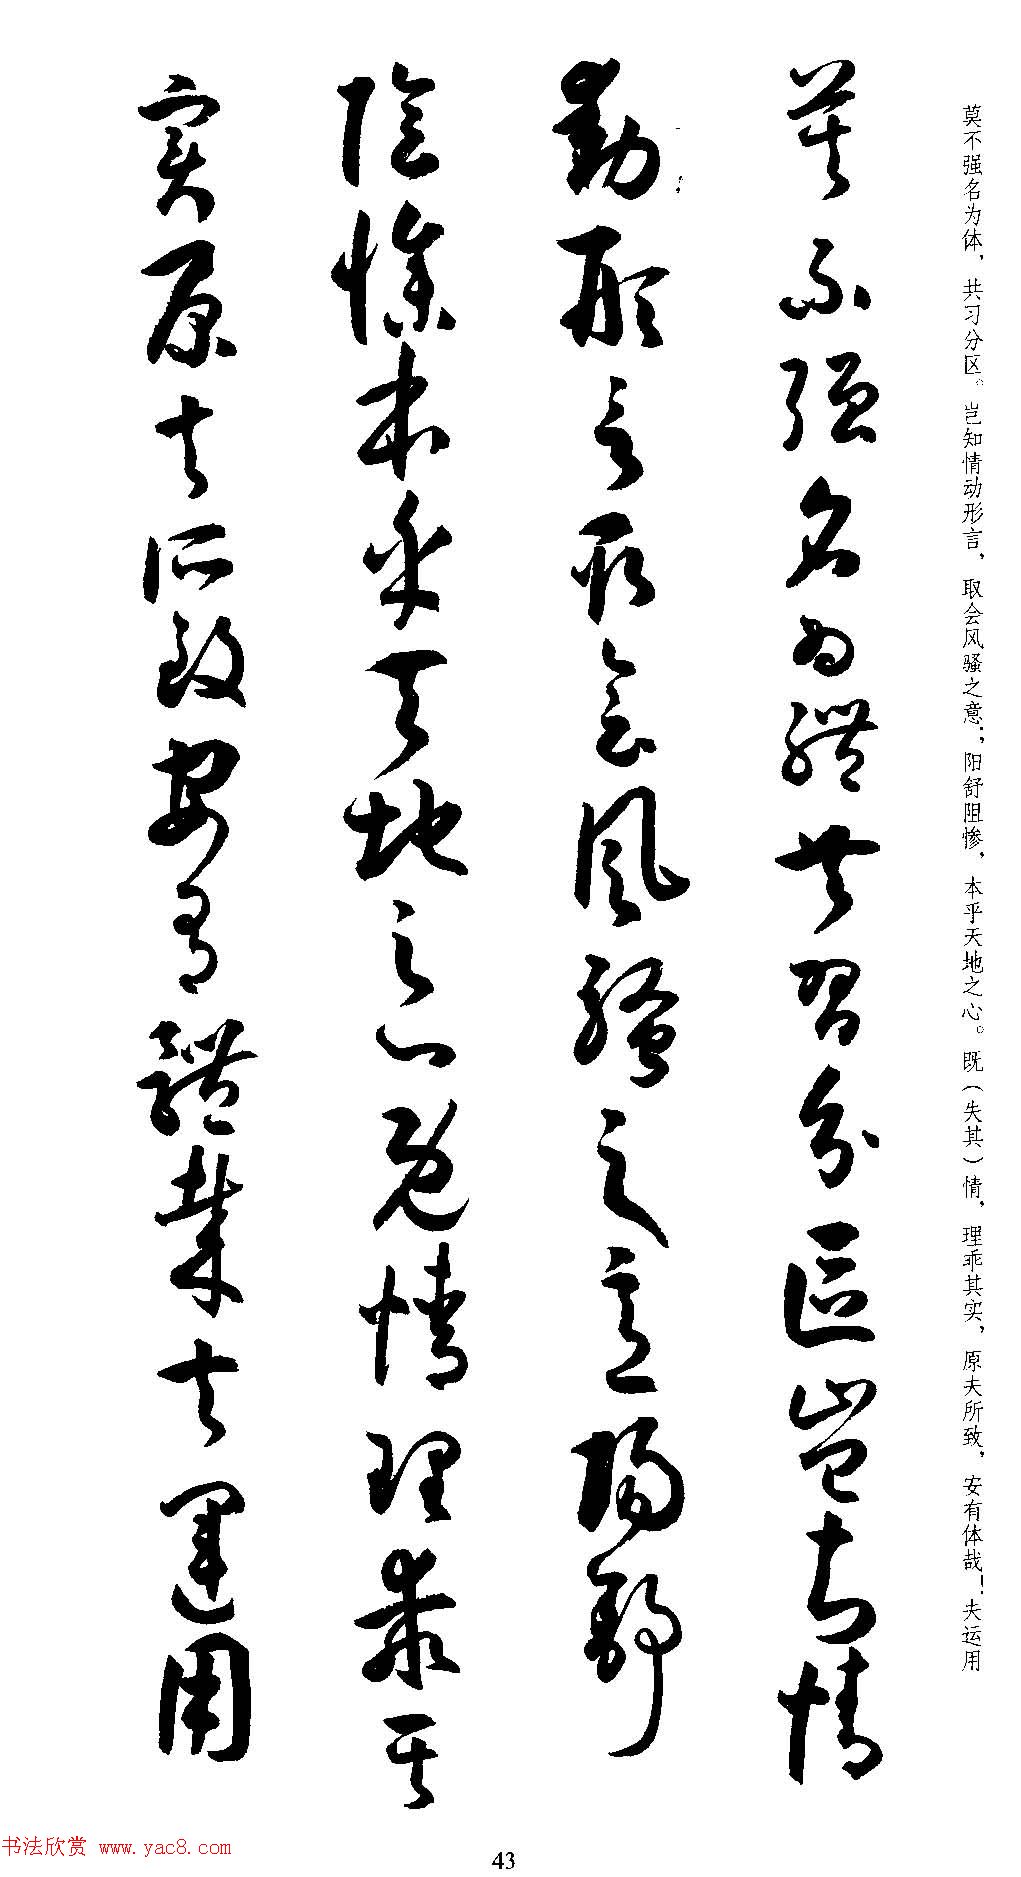 莫不强名为体，共习分区。岂知情动形言，取会风骚之意；阳舒阻惨，本乎天地之心。既（失其）情，理乖其实，原夫所致，安有体哉！夫运用
莫不強名為體共習分區豈知情
動形言取會風騷之意陽舒
陰慘本乎天地之心既情理乖其
實原夫所致安有體哉夫運用
书法欣赏 www.yac8.com
43